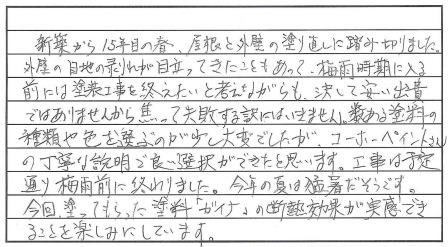 新築から15年目の春、屋根と外壁の塗り直しに踏み切りました。
外壁の目地の剥れが目立ってきたこともあって、梅雨時期に入る
前には塗装工事を終えたいと考えながらも、決して安い出費
ではありませんから焦って失敗する訳にはいきません。数ある塗料の
種類や色を選ぶのが少し大変でしたが、コーホーペイントさん
の丁寧な説明で良い選択ができたと思います。工事は予定
通り梅雨前に終わりました。今年の夏は猛暑だそうです。
今回塗ってもらった塗料「ガイナ」の断熱効果が実感でき
ることを楽しみにしています。